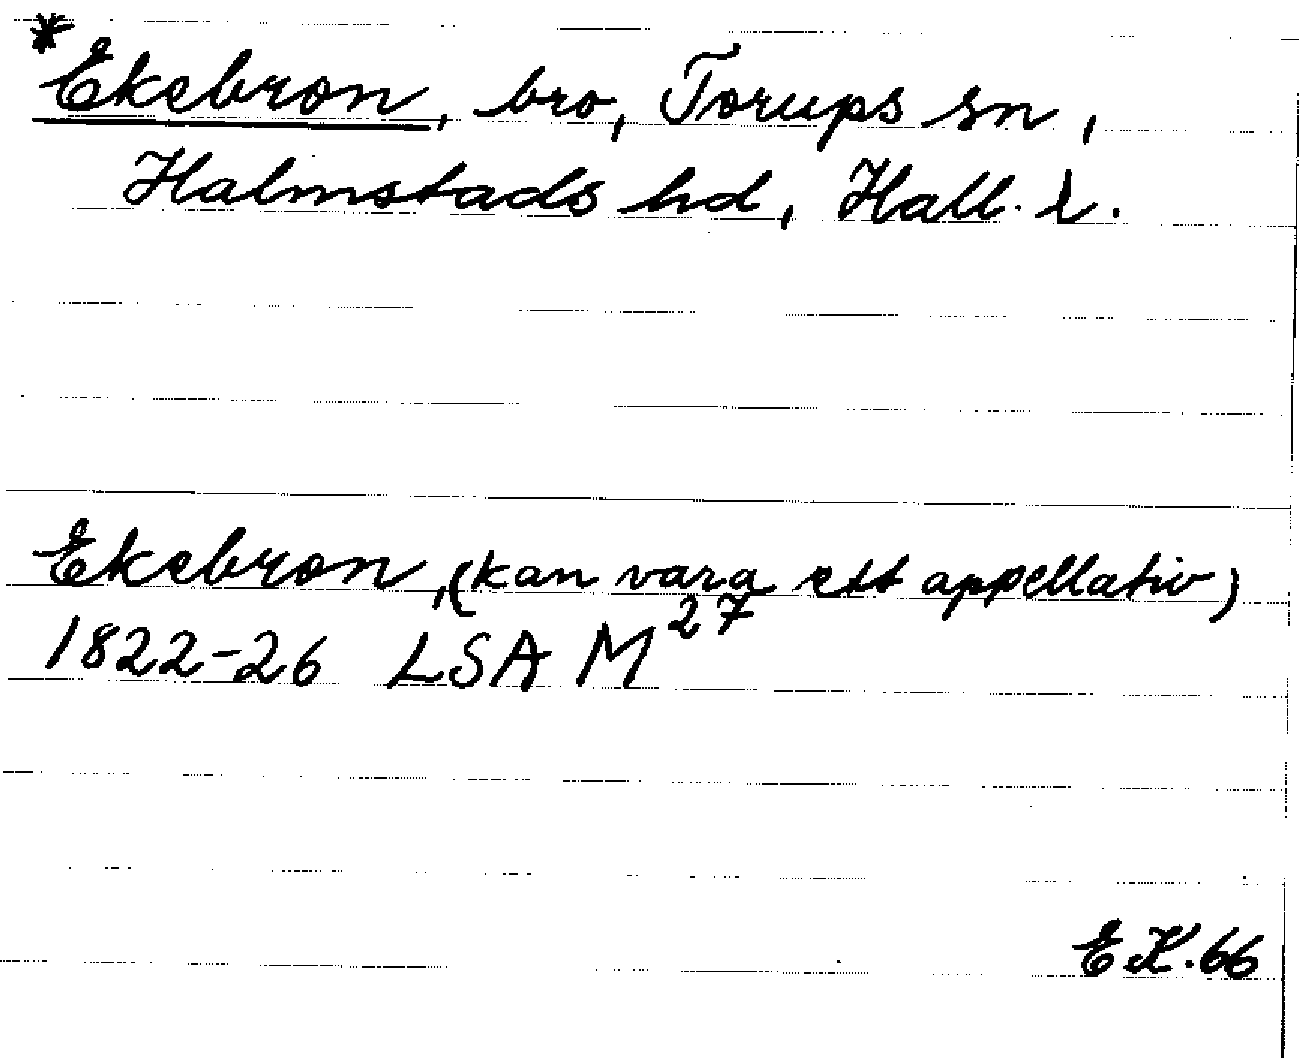 *
Ekebron, bro, Torups sn,
Halmstads hd, Hall. l.
Ekebron, (kan vara ett appellativ)
1822-26 LSA M 27
E K. 66